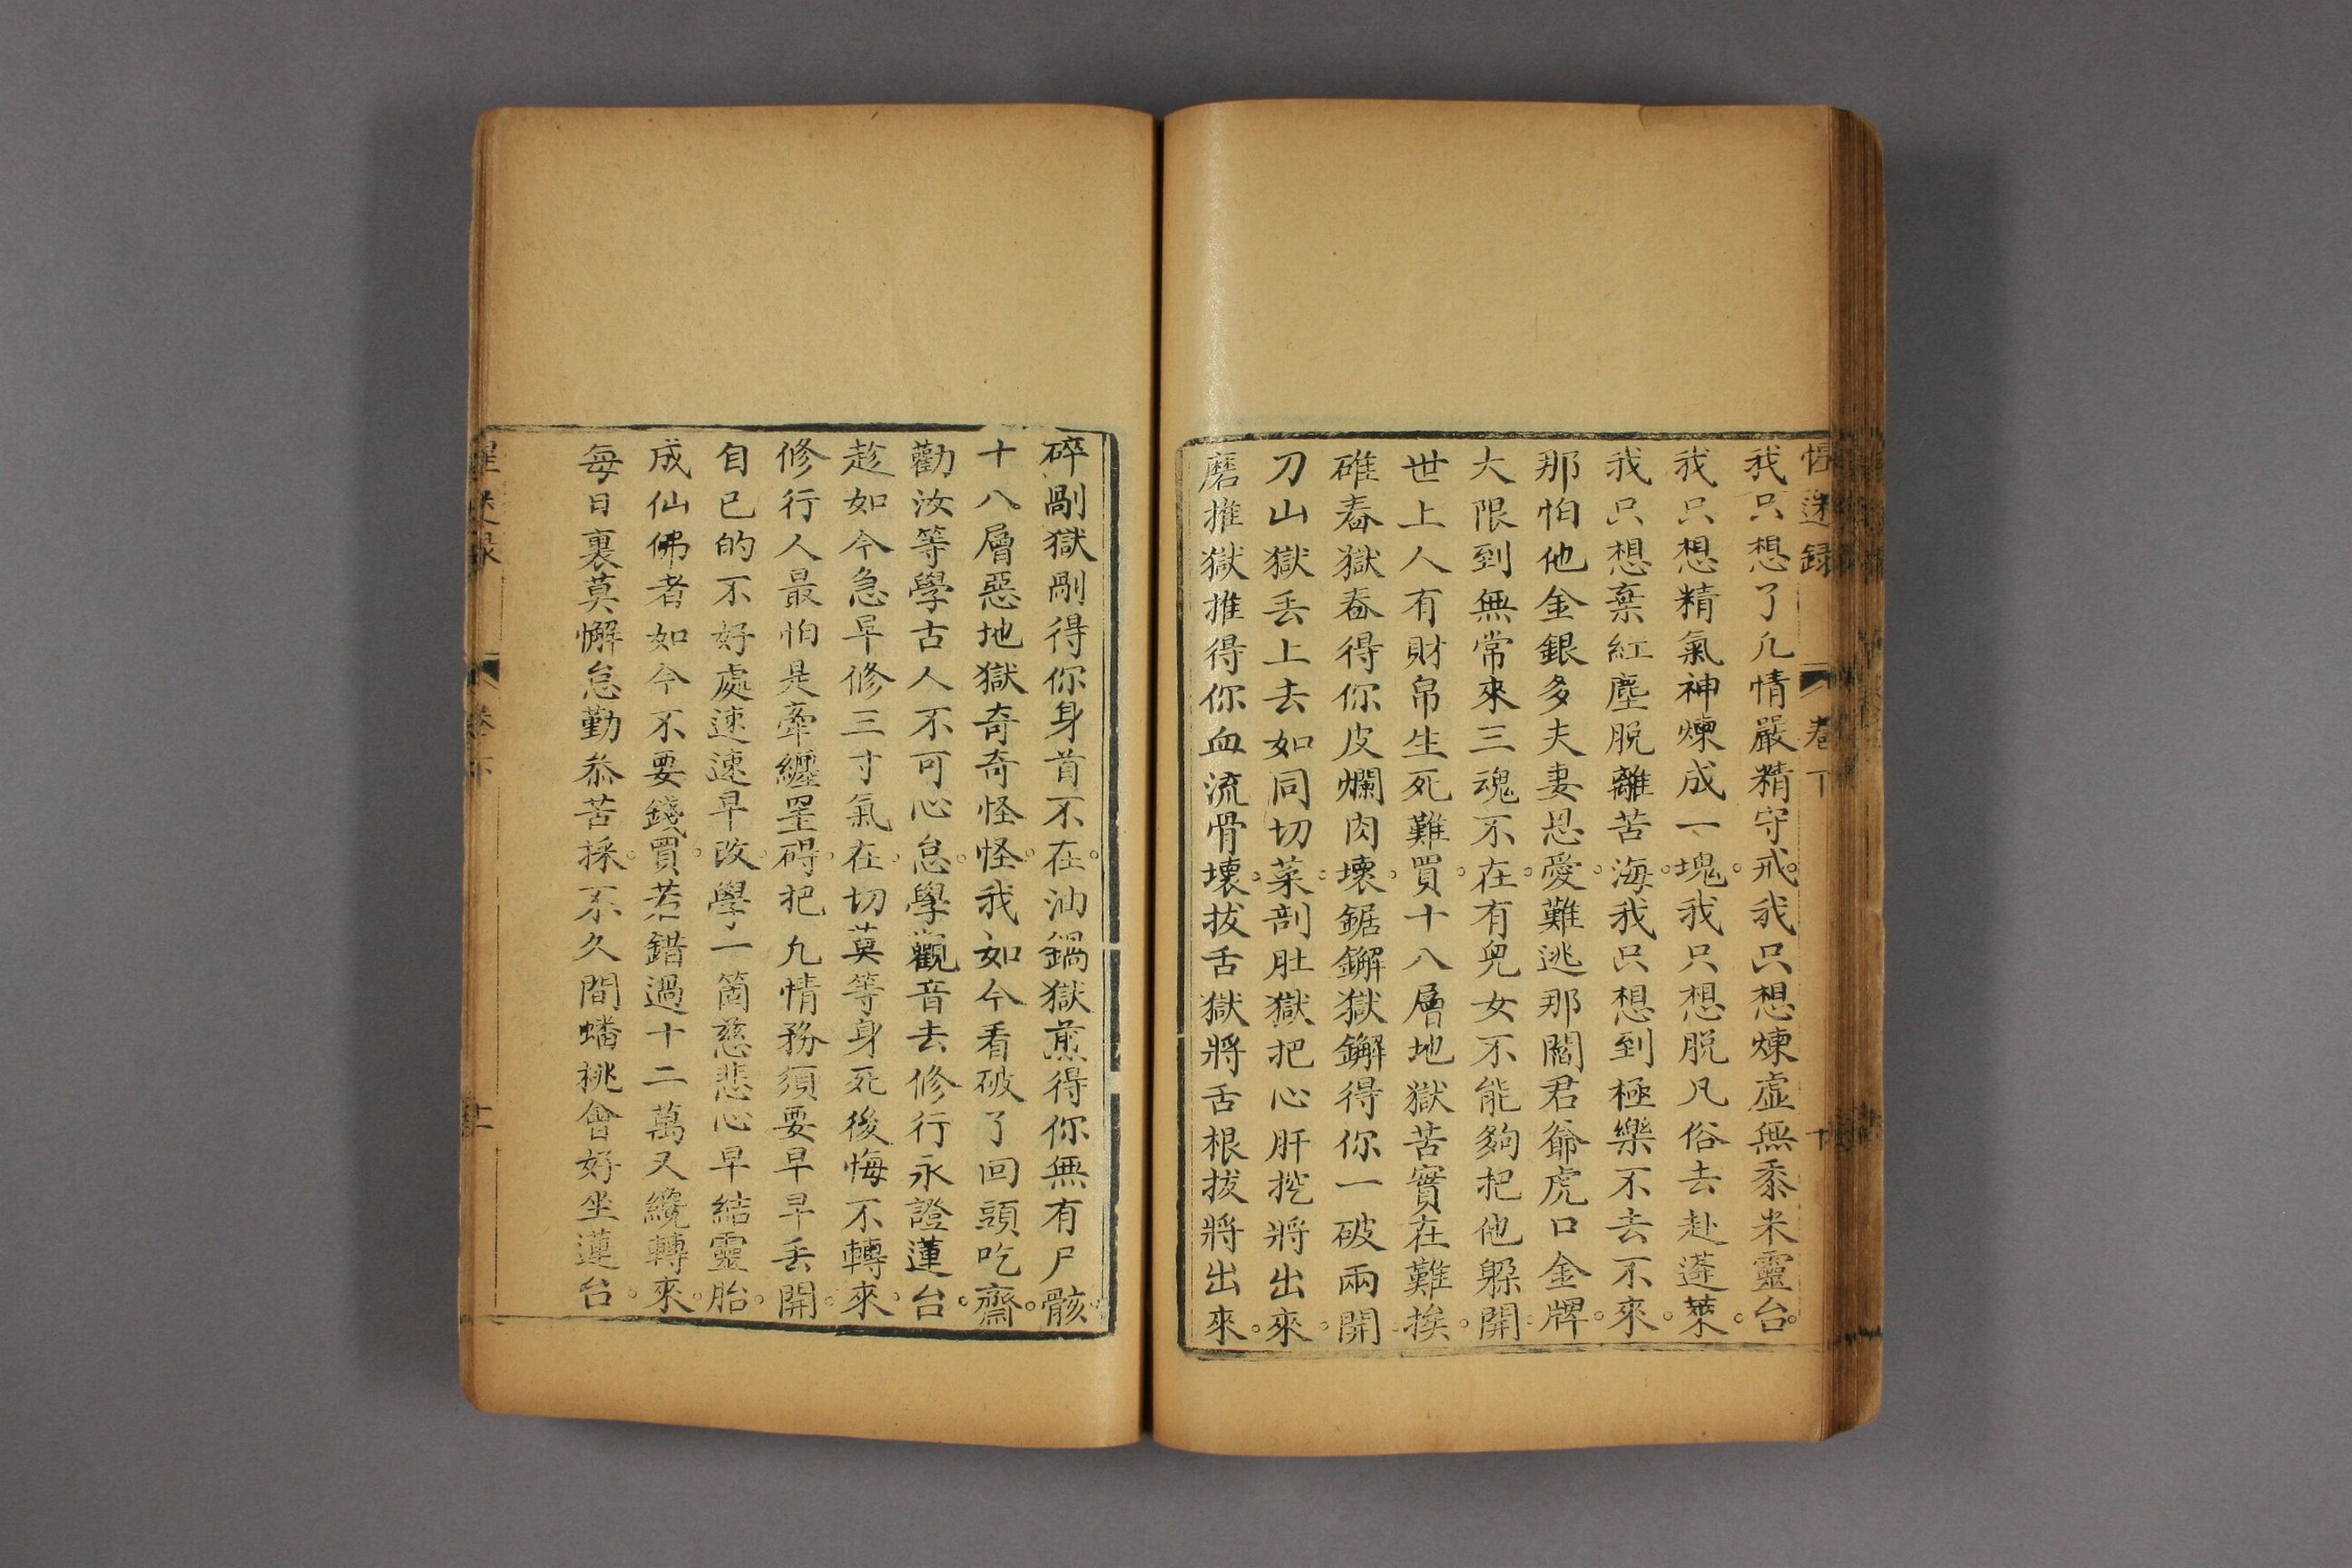 迷録 卷下 十
我只想了凢情嚴精守戒。我只想煉虛無黍米靈台。
我只想精氣神煉成一塊。我只想脱凡俗去赴蓬萊。
我只想棄紅塵脱離苦海。我只想到極樂不去不來。
那怕他金銀多夫妻恩愛。難逃那閻君爺虎口金牌。
大限到無常來三魂不在。有兒女不能夠把他躲開。
世上人有財帛生死難買。十八層地獄苦實在難挨。
碓舂獄舂得你皮爛肉壞。鋸鐦獄鐦得你一破兩開。
刀山獄丢上去如同切菜。剖肚獄把心肝挖將出來。
磨推獄推得你血流骨壞。拔舌獄將舌根拔將出來。
碎剮獄剮得你身首不在。油鍋獄煎得你無有尸骸。
十八層惡地獄奇奇怪怪。我如今看破了回頭吃齋。
勸汝等學古人不可心怠。學觀音去修行永證蓮台。
趁如今急早修三寸氣在。切莫等身死後悔不轉來。
修行人最怕是牽纏罣碍。把九情務須要早早丢開。
自已的不好處速速早改。學一箇慈悲心早結靈胎。
成仙佛者如今不要錢買。若錯過十二萬又纔轉來。
每日裏莫懈怠勤叅苦採。不久間蟠桃會好坐蓮台。
卷下 十一